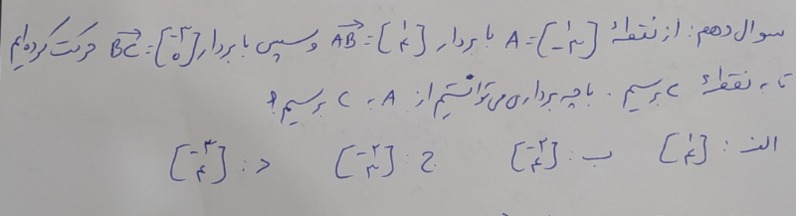 سوال دهم: از نقطهٔ A = [۱ -۳] با بردار AB = [۱ ۴] و سپس با بردار BC = [-۳ ۰] حرکت کرده‌ایم
تا به نقطهٔ C برسیم. با چه برداری می‌توانستیم از A به C برسیم؟
الف: [۱ ۴] ب: [-۲ ۴] ج: [-۲ ۳] د: [-۳ ۴]